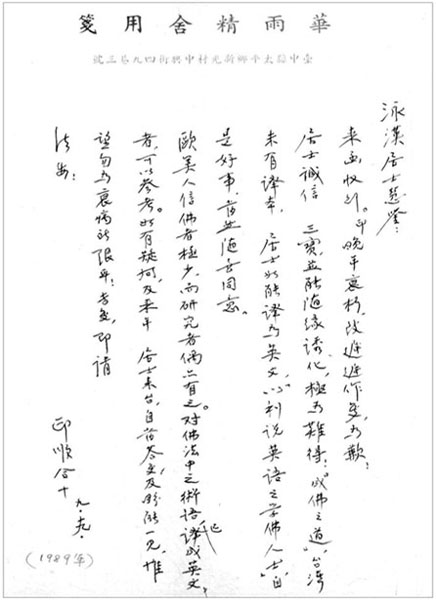 華雨精舍用箋
臺中縣太平鄉新光村中興街四九巷三號
泳漢居士慧鑒：
來函收到。印晚年衰朽，致遲遲作覆為歉！
居士誠信 三寶，並能隨緣誘化，極為難得！「成佛之道」，台灣
未有譯本，居士如能譯為英文，以利說英語之學佛人士，自
是好事，當然隨喜同意。
歐美人信佛者極少，而研究者偶亦有之。對佛法中之術語譯成英文
者，可以參考。如有疑問，及來年 居士來台，自當答覆及盼能一見，惟
望勿為衰病所限耳！專覆，即請
法安！
印順合十 九．
(1989年)